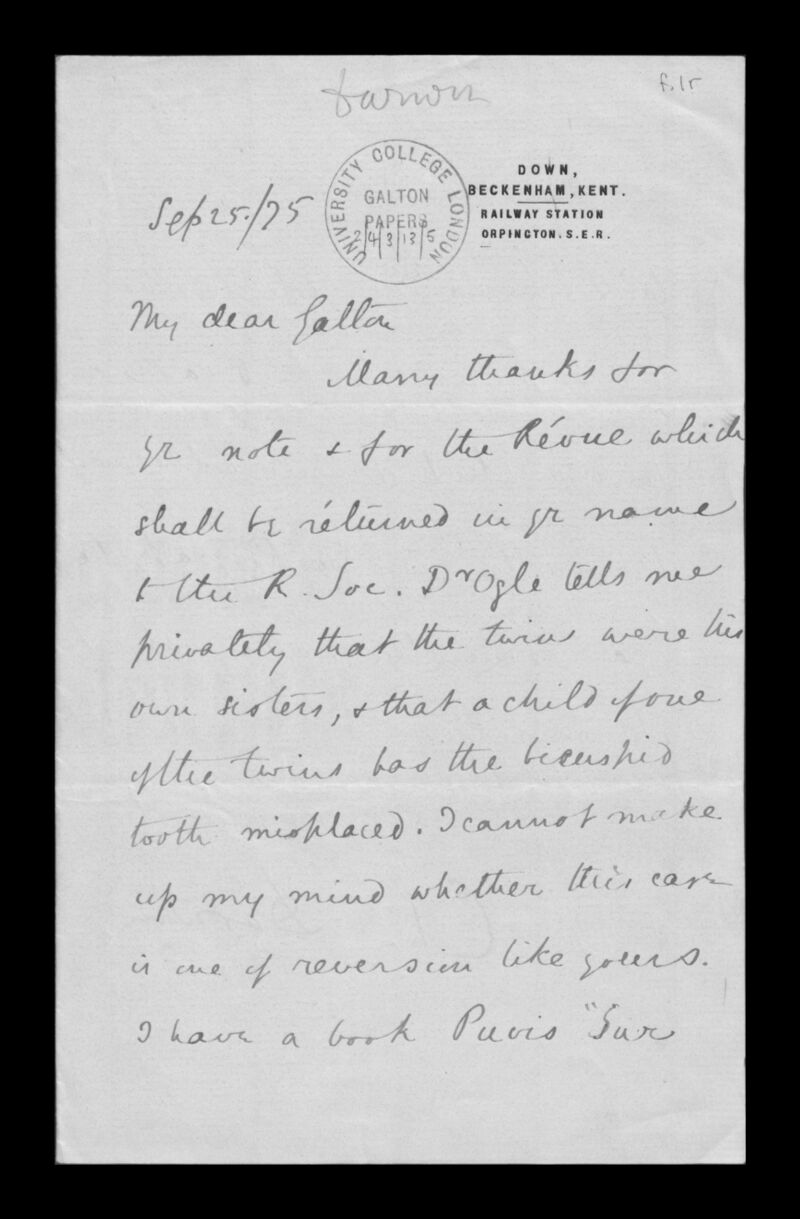 Darwin
f.1r
UNIVERSITY COLLEGE LONDON
GALTON
PAPERS
2/4/3/13/5
DOWN,
BECKENHAM, KENT.
RAILWAY STATION
ORPINGTON. S.E.R.
Sep 25./75
My dear Galton
Many thanks for
yr note & for the Révue which
shall be returned in yr name
to the R. Soc. Dr Ogle tells me
privately that the twins were his
own sisters, & that a child of one
of the twins has the bicuspid
tooth misplaced. I cannot make
up my mind whether this case
is one of reversion like yours.
I have a book Puvis "Sur